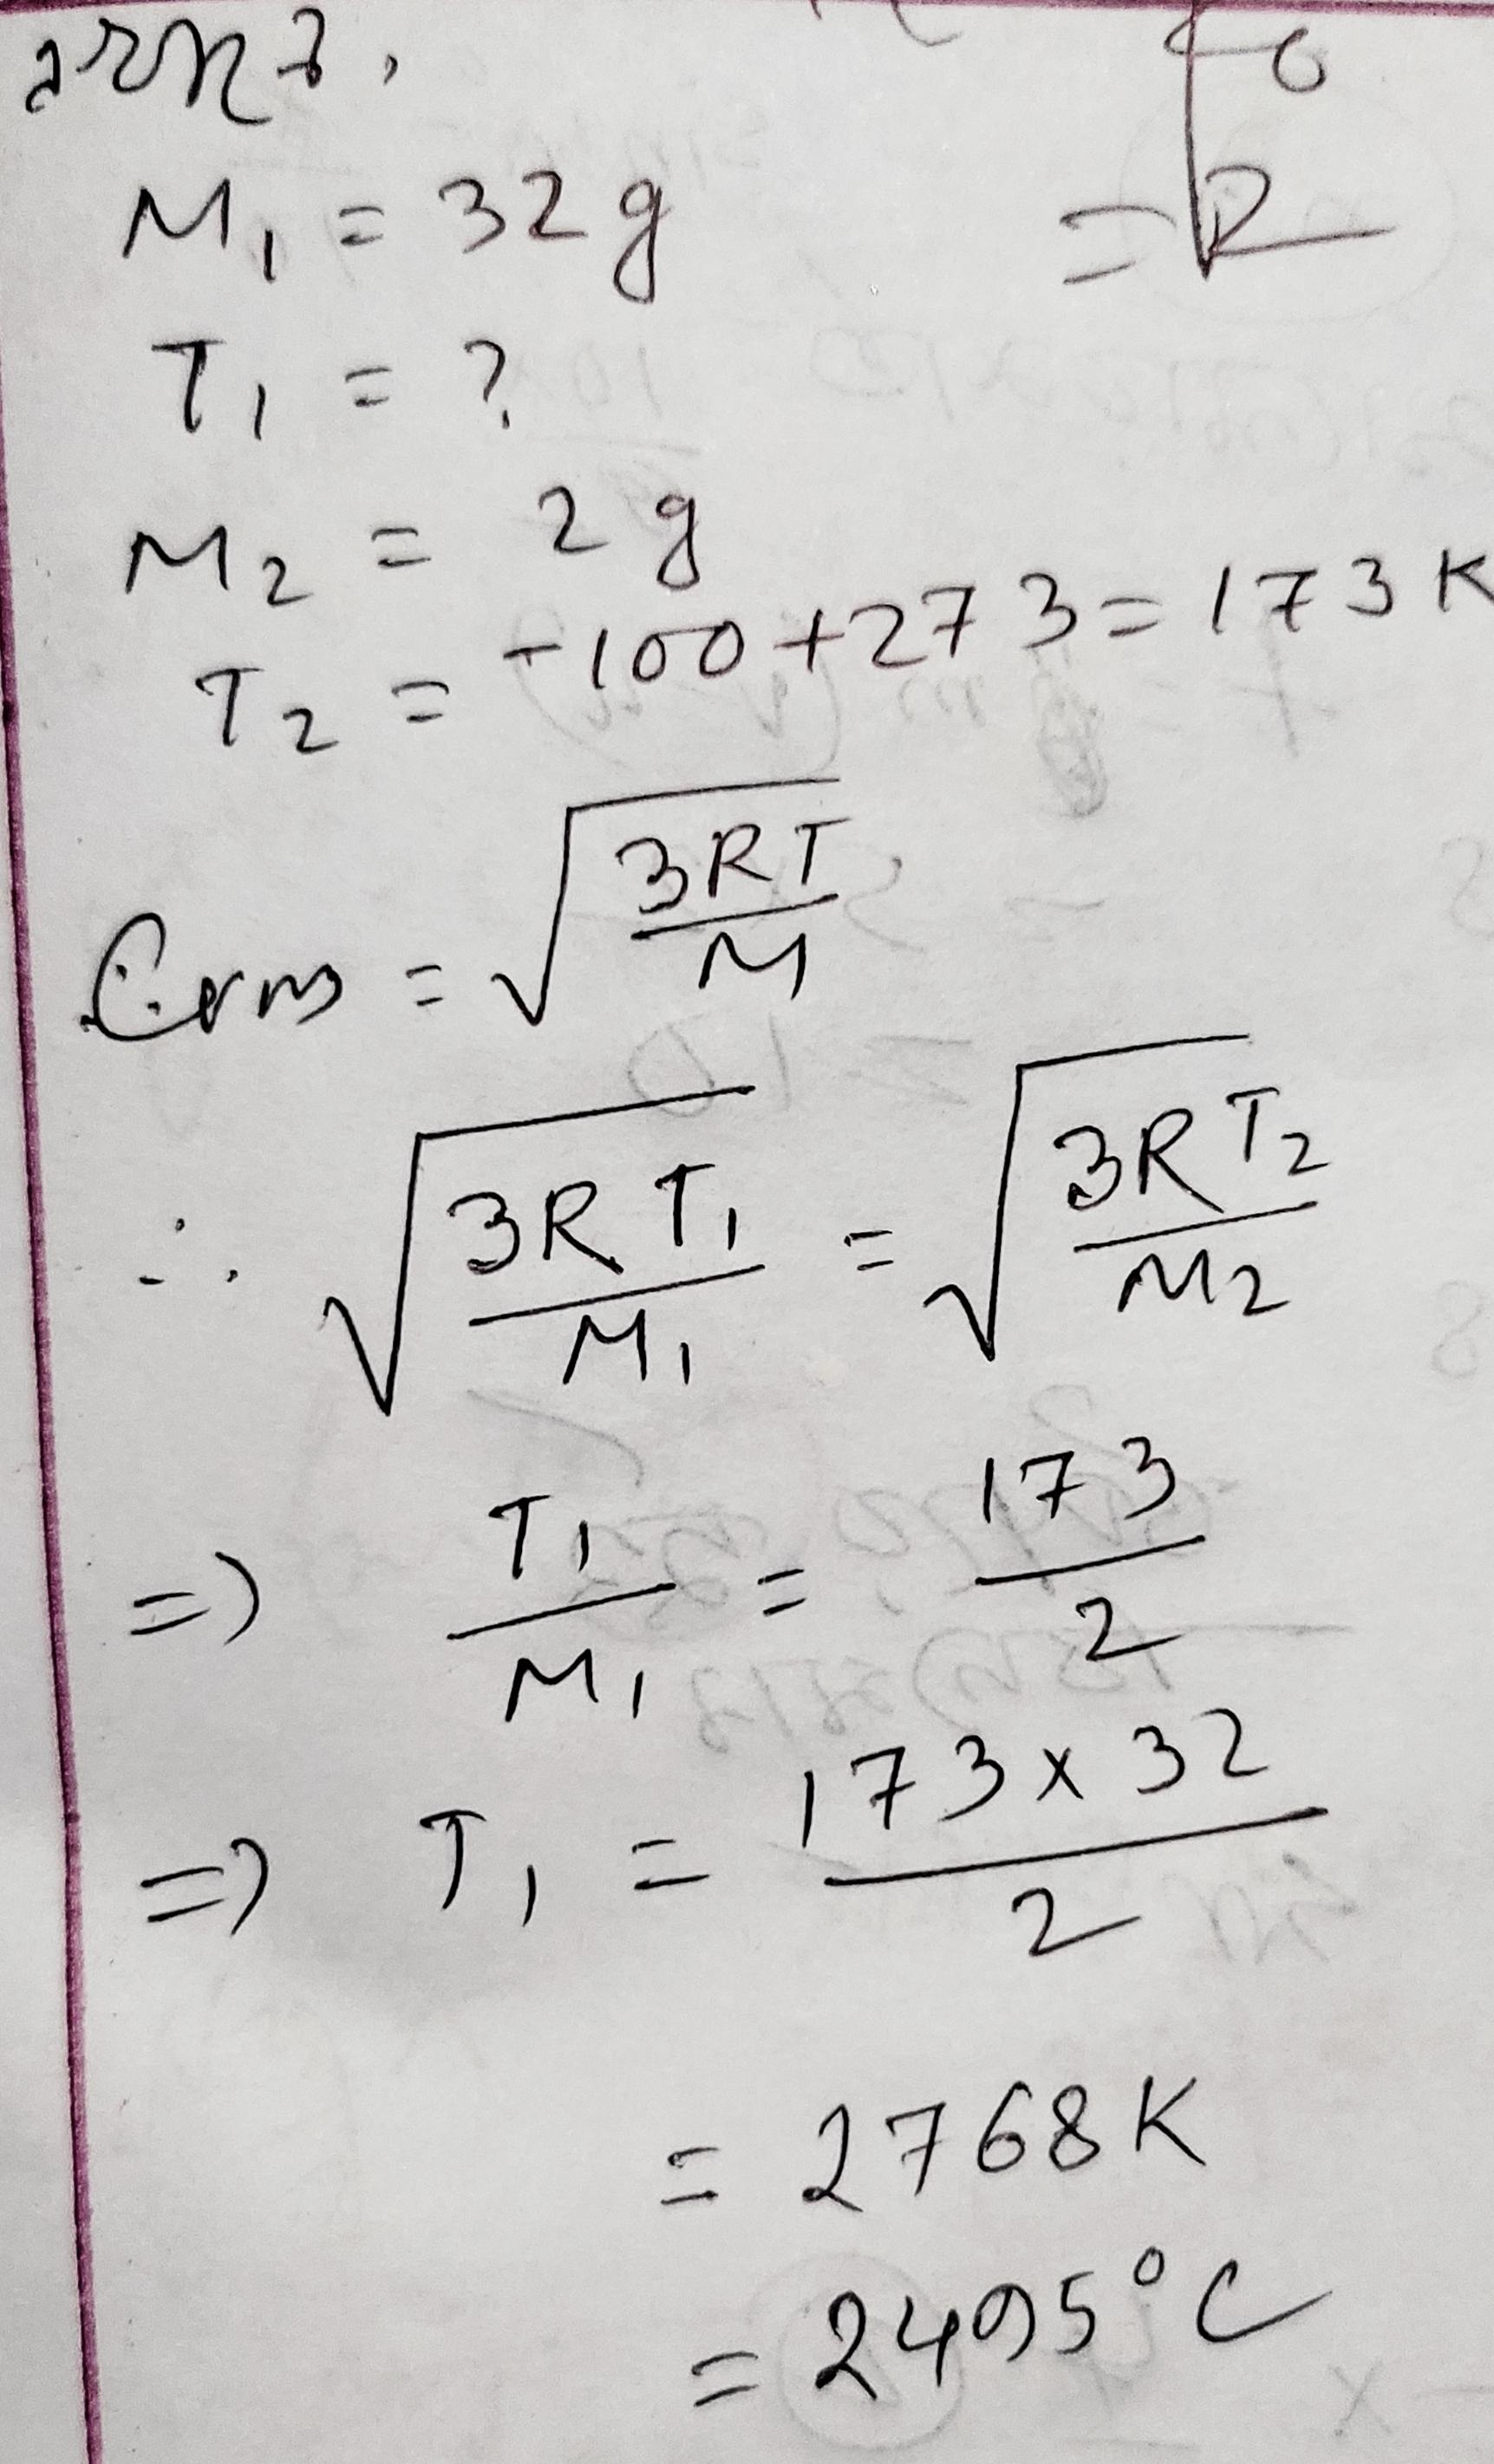 M₁ = 32 g
T₁ = ?
M₂ = 2 g
T₂ = -100 + 273 = 173 K
Crms = √(3RT/M)
∴ √(3RT₁/M₁) = √(3RT₂/M₂)
⇒ T₁/M₁ = 173/2
⇒ T₁ = 173 × 32/2
= 2768 K
= 2495°C